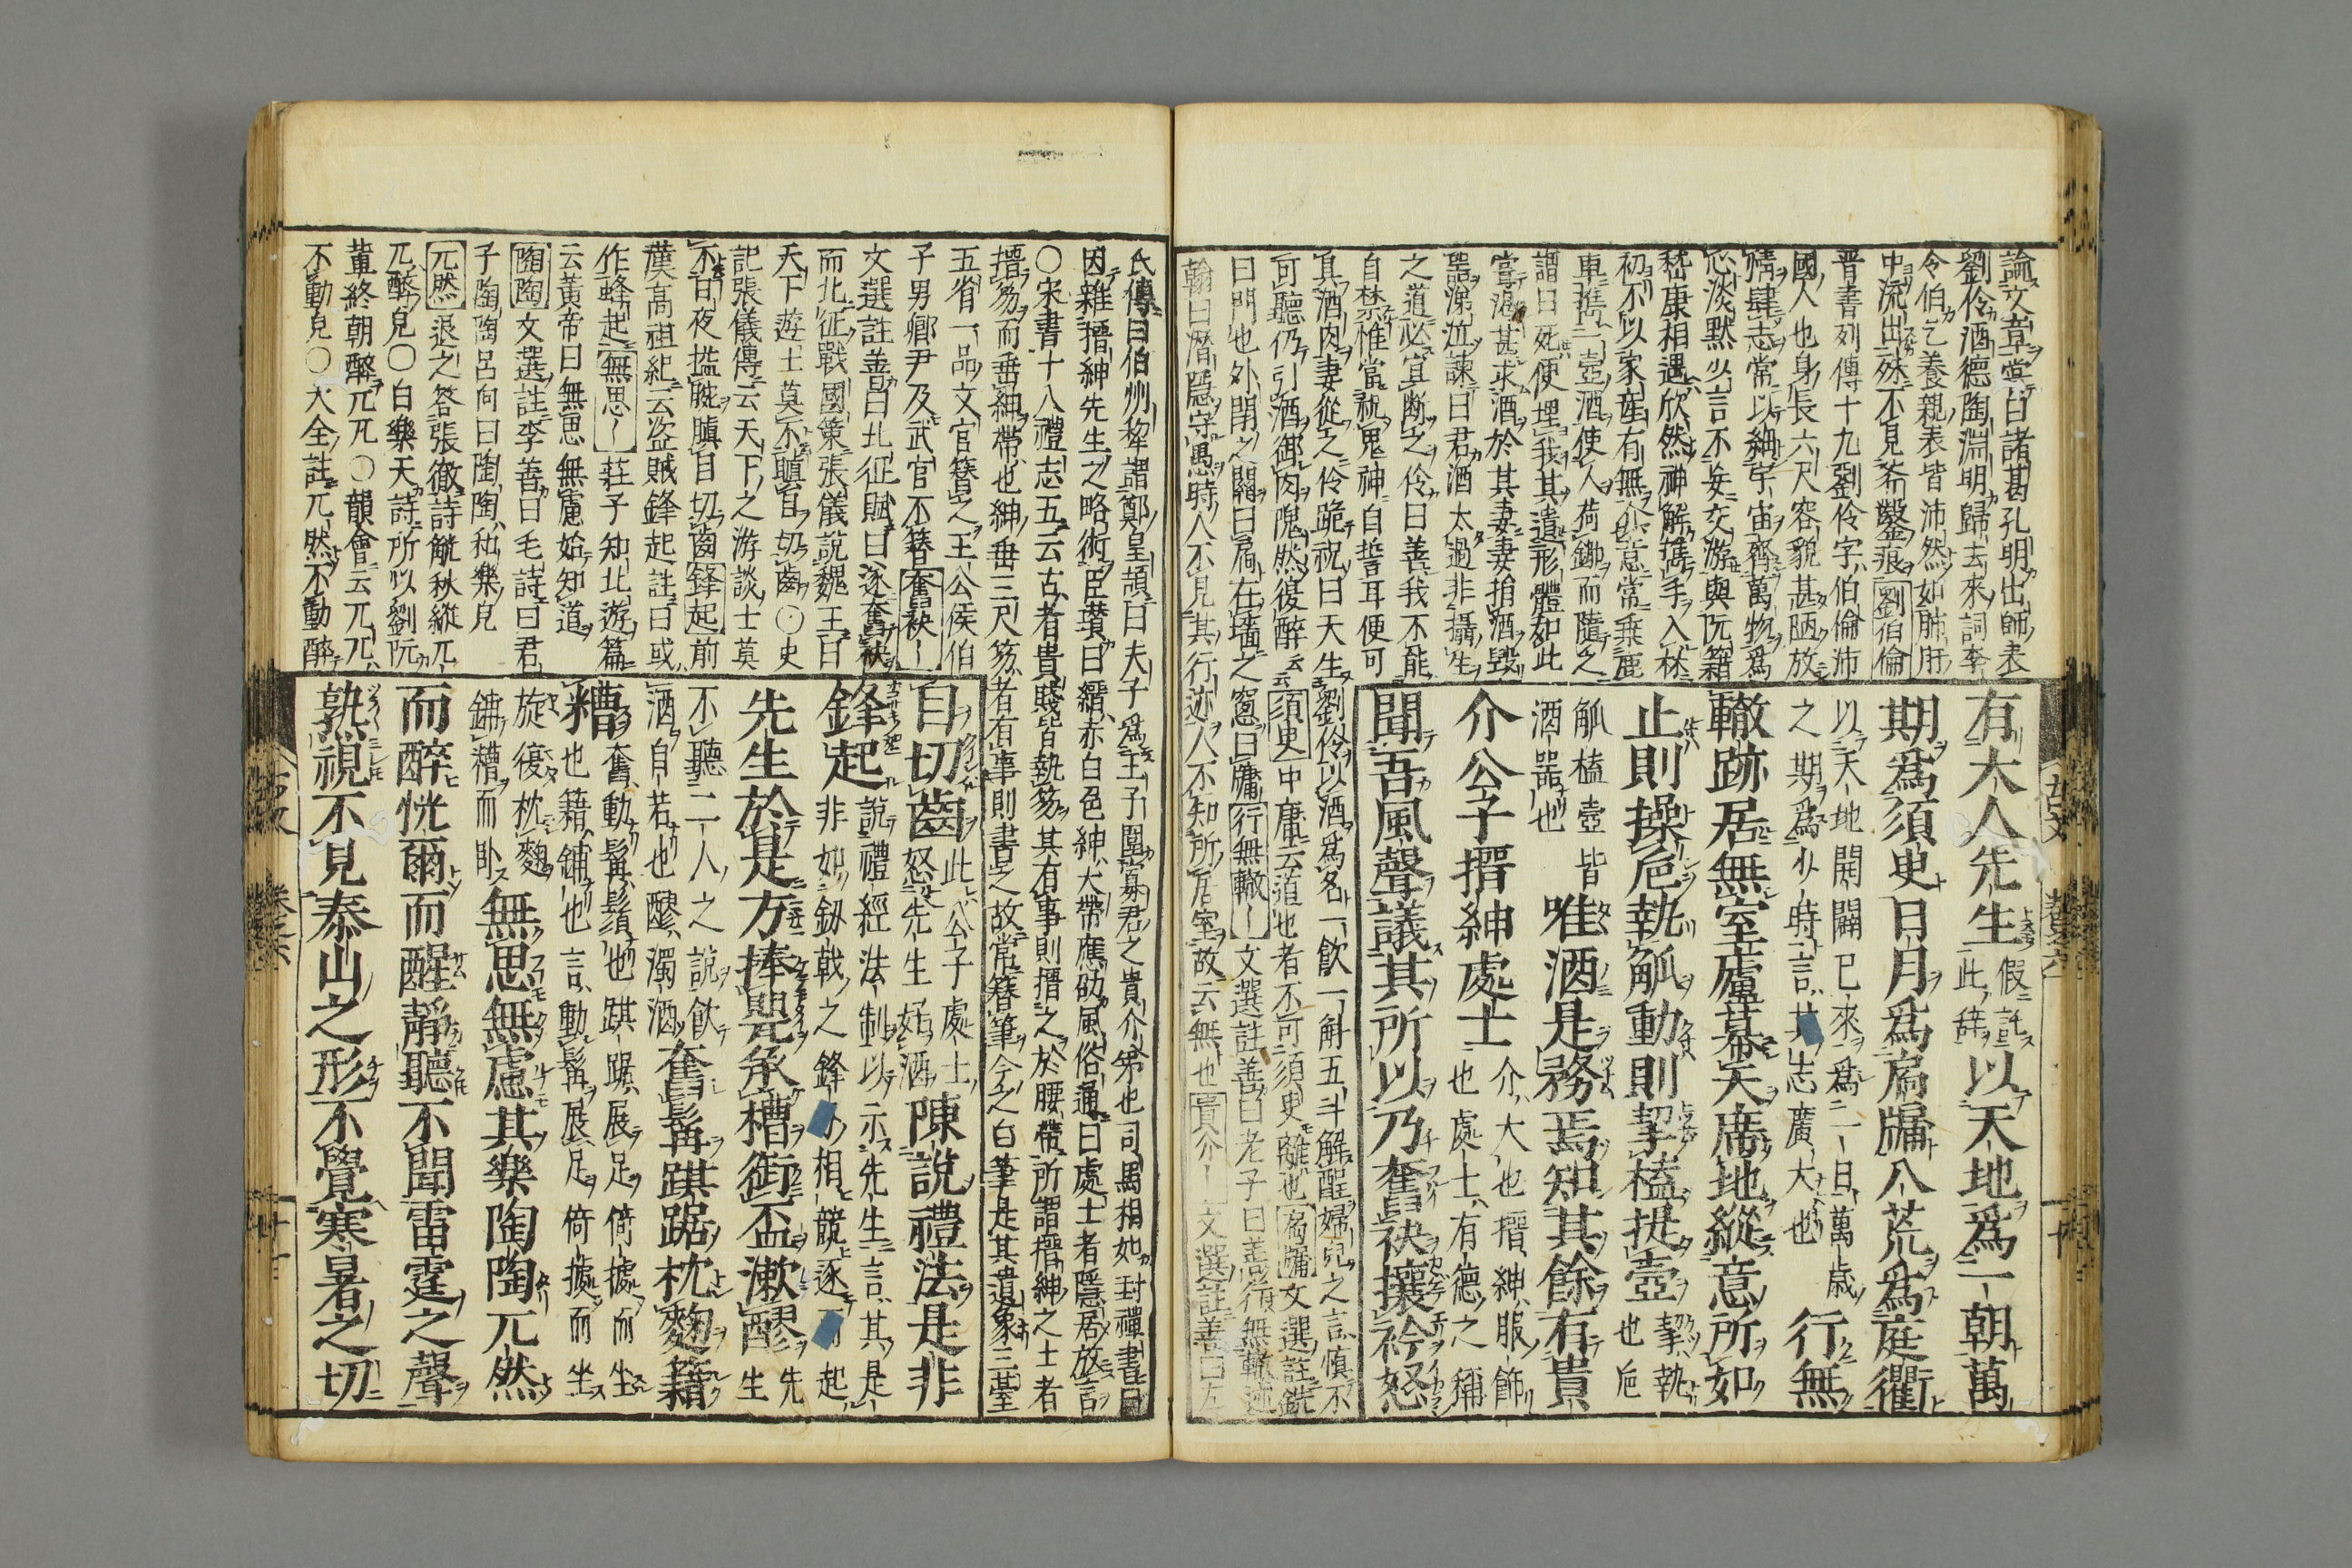 論文章嘗曰諸葛孔明出師表
劉伶酒德陶淵明歸去來詞李
令伯乞養親表皆沛然如肺肝
中流出殊不見斧鑿痕劉伯倫
晋書列傳十九劉伶字伯倫沛
國人也身長六尺容貌甚陋放
情肆志常以細宇宙齊萬物爲
心淡默少言不妄交游與阮籍
嵆康相遇欣然神解携手入林
初不以家産有無介意常乗鹿
車携一壺酒使人荷鍤而隨之
謂曰死便埋我其遺形體如此
嘗渴甚求酒於其妻妻捐酒毀
器涕泣諫曰君酒太過非攝生
之道必宜断之伶曰善我不能
自禁惟當祝鬼神自誓耳便可
具酒肉妻從之伶跪祝曰天生劉伶以酒爲名一飲一斛五斗解酲婦兒之言慎不
可聽仍引酒御肉隗然復醉云須臾中庸云道也者不可須臾離也扃牖文選註銑
曰門也外閉之關曰扃在墻之窓曰牖行無轍〡文選註善曰老子曰善行無轍迹
翰曰潛隱字愚時人不見其行迹人不知所居室故云無也貴介〡文選註善曰左
有大人先生假託此辞以天地爲一朝萬
期爲須臾日月爲扃牖八荒爲庭衢
以天地開闢已來爲一日萬歳之期爲少時言其志廣大也行無
轍跡居無室廬幕天席地縱意所如
止則操巵執觚動則挈榼提壺挈執也巵
觚榼壺皆酒器也唯酒是務焉知其餘有貴
介公子搢紳處士介大也搢紳服飾也處士有德之稱
聞吾風聲議其所以乃奮袂攘衿怒
古文 卷之六
氏傳曰伯州犂謂鄭皇頡曰夫子爲王子圍寡君之貴介弟也司馬相如封禪書曰
因雜搢紳先生之略術臣瓉曰縉赤白色紳大帶應劭風俗通曰處士者隱居放言
〇宋書十八禮志五云古者貴賤皆執笏其有事則搢之於腰帶所謂搢紳之士者
搢笏而垂紳帶也紳垂三尺笏者有事則書之故常簪筆今之白筆是其遺象三臺
五省二品文官簪之王公侯伯
子男卿尹及武官不簪奮袂〡
文選註善曰北征賦曰遂奮袂
而北征戰國策張儀説魏王曰
天下遊士莫不瞋目切齒〇史
記張儀傳云天下之游談士莫
不日夜搤腕瞋目切齒鋒起前
漢高祖紀云盗賊鋒起註曰或
作蜂起無思〡莊子知北遊篇
云黃帝曰無思無慮始知道
陶陶文選註李善曰毛詩曰君
子陶陶呂向曰陶陶和樂皃
兀然退之答張徹詩觥秋縱兀
兀醉皃〇白樂天詩所以劉阮
輩終朝醉兀兀〇韻會云兀兀
不動皃〇大全註兀然不動醉
目切齒此公子處士怒先生好酒陳説禮法是非
鋒起説禮經法制以示先生言其是非如釼戟之鋒相競逐而起
先生於是方捧甖承槽銜盃漱醪先生
不聽二人之説飲酒自若也醪濁酒奮髯踑踞枕麴籍
糟奮動髯鬚也踑踞展足倚據而坐也籍鋪也言動髯展足倚據而坐
旋復枕麴鋪糟而卧無思無慮其樂陶陶兀然
而醉恍爾而醒靜聽不聞雷霆之聲
熟視不見泰山之形不覺寒暑之切
古文 卷之六